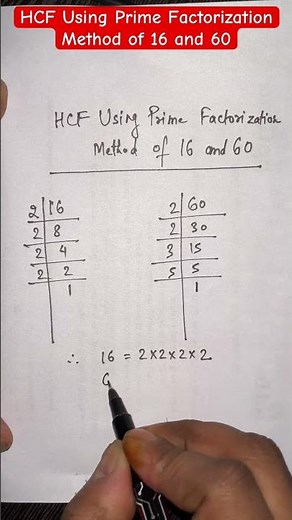 HCF Using Prime Factorization
Method of 16 and 60
HCF Using Prime Factorization
Method of 16 and 60
2 16
2 8
2 4
2 2
1
2 60
2 30
3 15
5 5
1
∴ 16 = 2×2×2×2